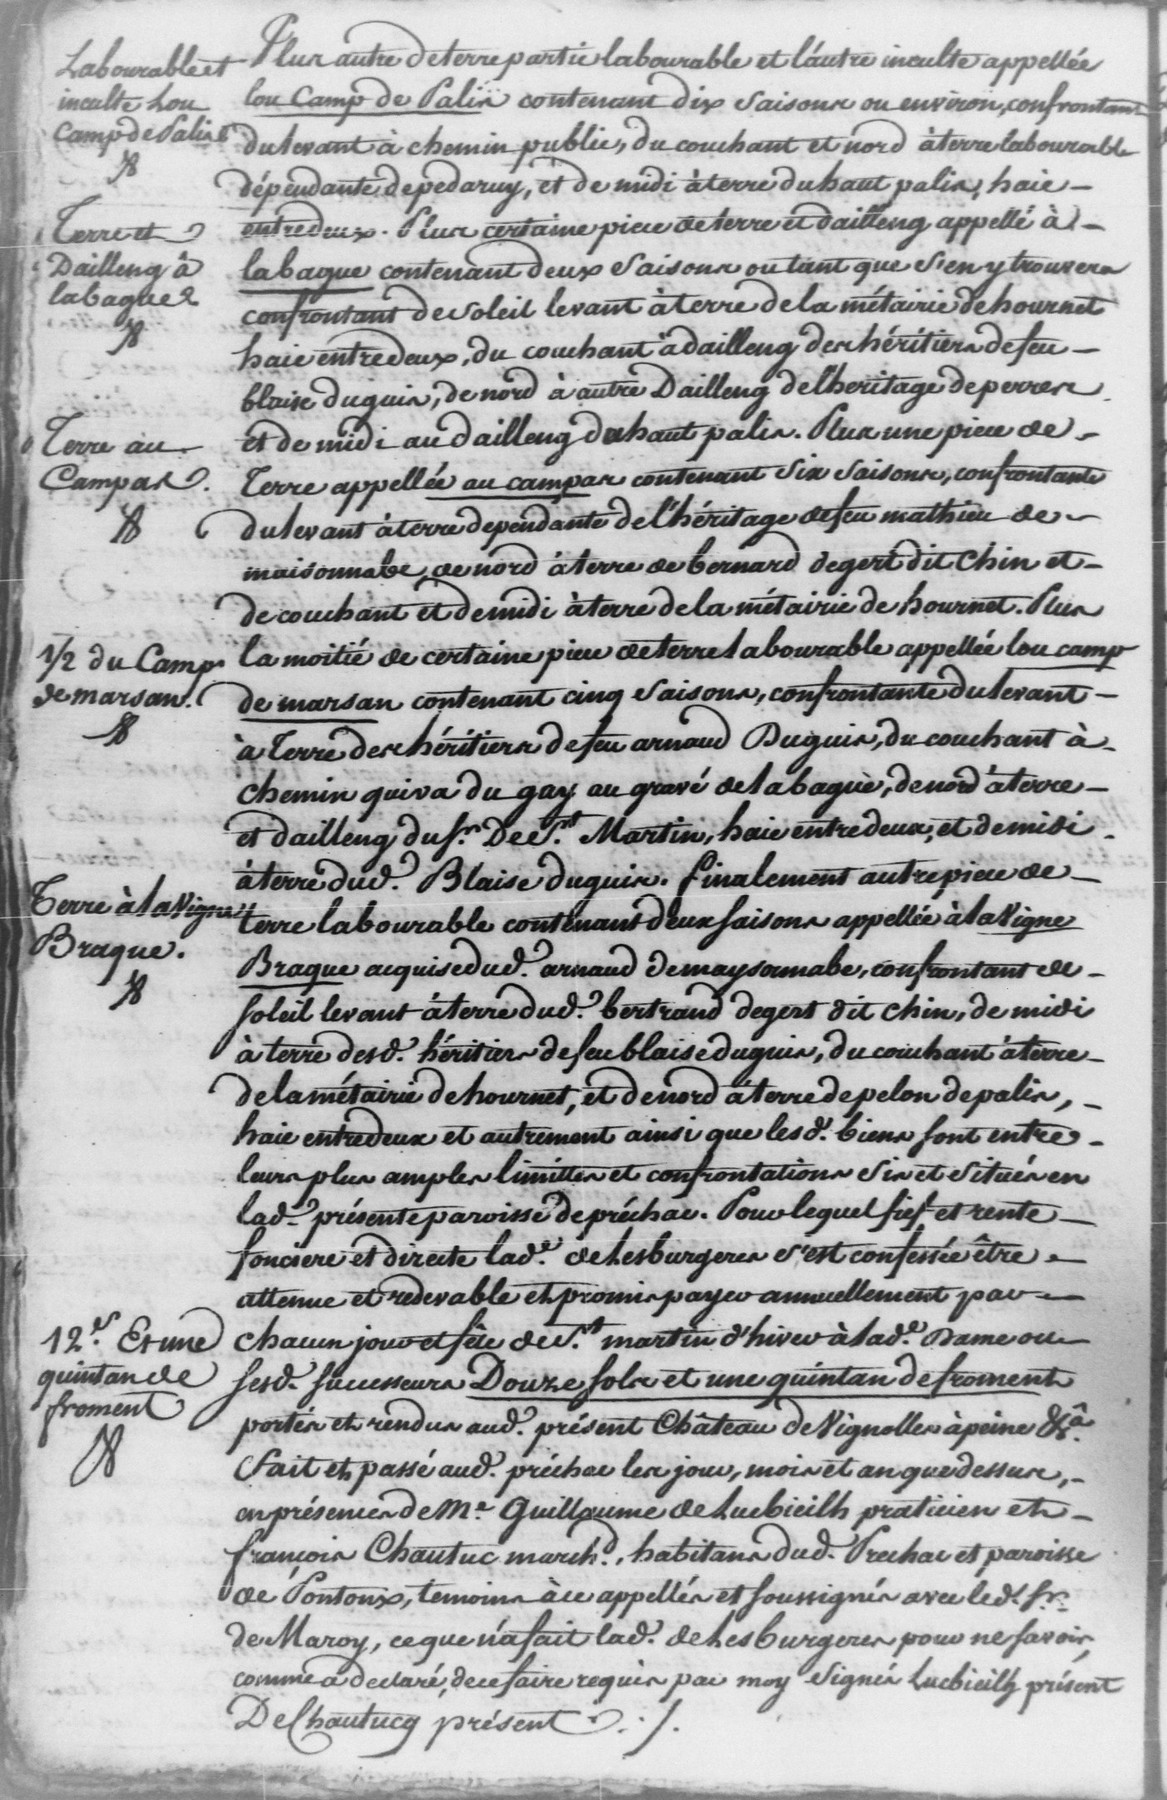 Labourable et
inculte Lou
Camp de Palis
Plus autre de terre partie labourable et l'autre inculte appellée
lou Camp de Palis contenant dix saisons ou environ, confrontant
du levant à chemin public, du couchant et nord à terre labourable
dépendante de pedaruy, et de midi à terre du haut palis, haie
Terre et
Dailleng à
labague
entredeux. Plus certaine piece de terre et dailleng appellé à
labague contenant deux saisons ou tant que s'en y trouvera
confrontant de soleil levant à terre de la métairie de hournet
haie entredeux, du couchant à dailleng des héritiers de feu
blaise duguis, de nord à autre Dailleng de l'heritage de perres
Terre au
Campas.
et de midi au dailleng du haut palis. Plus une piece de
Terre appellée au campas contenant six saisons, confrontante
du levant à terre dependante de l'héritage de feu mathieu de
maisonnabe, de nord à terre de bernard degert dit Chin et
de couchant et de midi à terre de la métairie de hournet. Plus
1/2 du Camp
de marsan.
la moitié de certaine piece de terre labourable appellée lou camp
de marsan contenant cinq saisons, confrontante du levant
à Terre des héritiers de feu arnaud Duguis, du couchant à
chemin qui va du gay au gravé de labague, de nord à terre
et dailleng du Sr. De St. Martin, haie entredeux, et de midi
à terre dud. Blaise duguis. finalement autre piece de
Terre à la Vigne
Braque.
terre labourable contenant deux saisons appellée à la Vigne
Braque acquise dud. arnaud de maysonnabe, confrontant de
soleil levant à terre dud. bertrand degert dit chin, de midi
à terre desd. héritiers de feu blaise duguis, du couchant à terre
de la métairie de hournet, et de nord à terre de pelon de palis,
haie entredeux et autrement ainsi que lesd. biens sont entre
leurs plus amples limittes et confrontations sis et situés en
lad. présente paroisse de préchac. Pour lequel fief et rente
fonciere et directe lad.e de Lesburgeres s'est confessée être
attenue et redevable et promis payer annuellement par
12.s Et une
quintan de
froment
chacun jour et fête de St. martin d'hiver à lad.e Dame ou
sesd. successeurs Douze sols et une quintan de froment
portés et rendus aud. présent Château de Vignolles à peine &a.
Fait et passé aud. préchac les jour, mois et an que dessus,
en présences de Me. Guillaume de Lucbieilh praticien et
françois Chautuc march.d, habitans dud. Prechac et paroisse
de Pontonx, temoins à ce appellés et soussignés avec led. Sr.
de Maroy, ce que n'a fait lad. de Lesburgeres pour ne savoir,
comme a declaré, de ce faire requis par moy signés Lucbieilh présent
De Chautucq présent